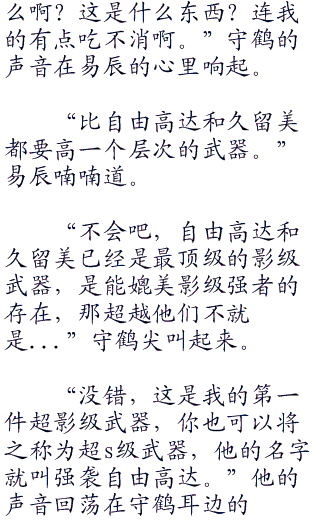 么啊？这是什么东西？连我
的有点吃不消啊。”守鹤的
声音在易辰的心里响起。
“比自由高达和久留美
都要高一个层次的武器。”
易辰喃喃道。
“不会吧，自由高达和
久留美已经是最顶级的影级
武器，是能媲美影级强者的
存在，那超越他们不就
是...”守鹤尖叫起来。
“没错，这是我的第一
件超影级武器，你也可以将
之称为超s级武器，他的名字
就叫强袭自由高达。”他的
声音回荡在守鹤耳边的